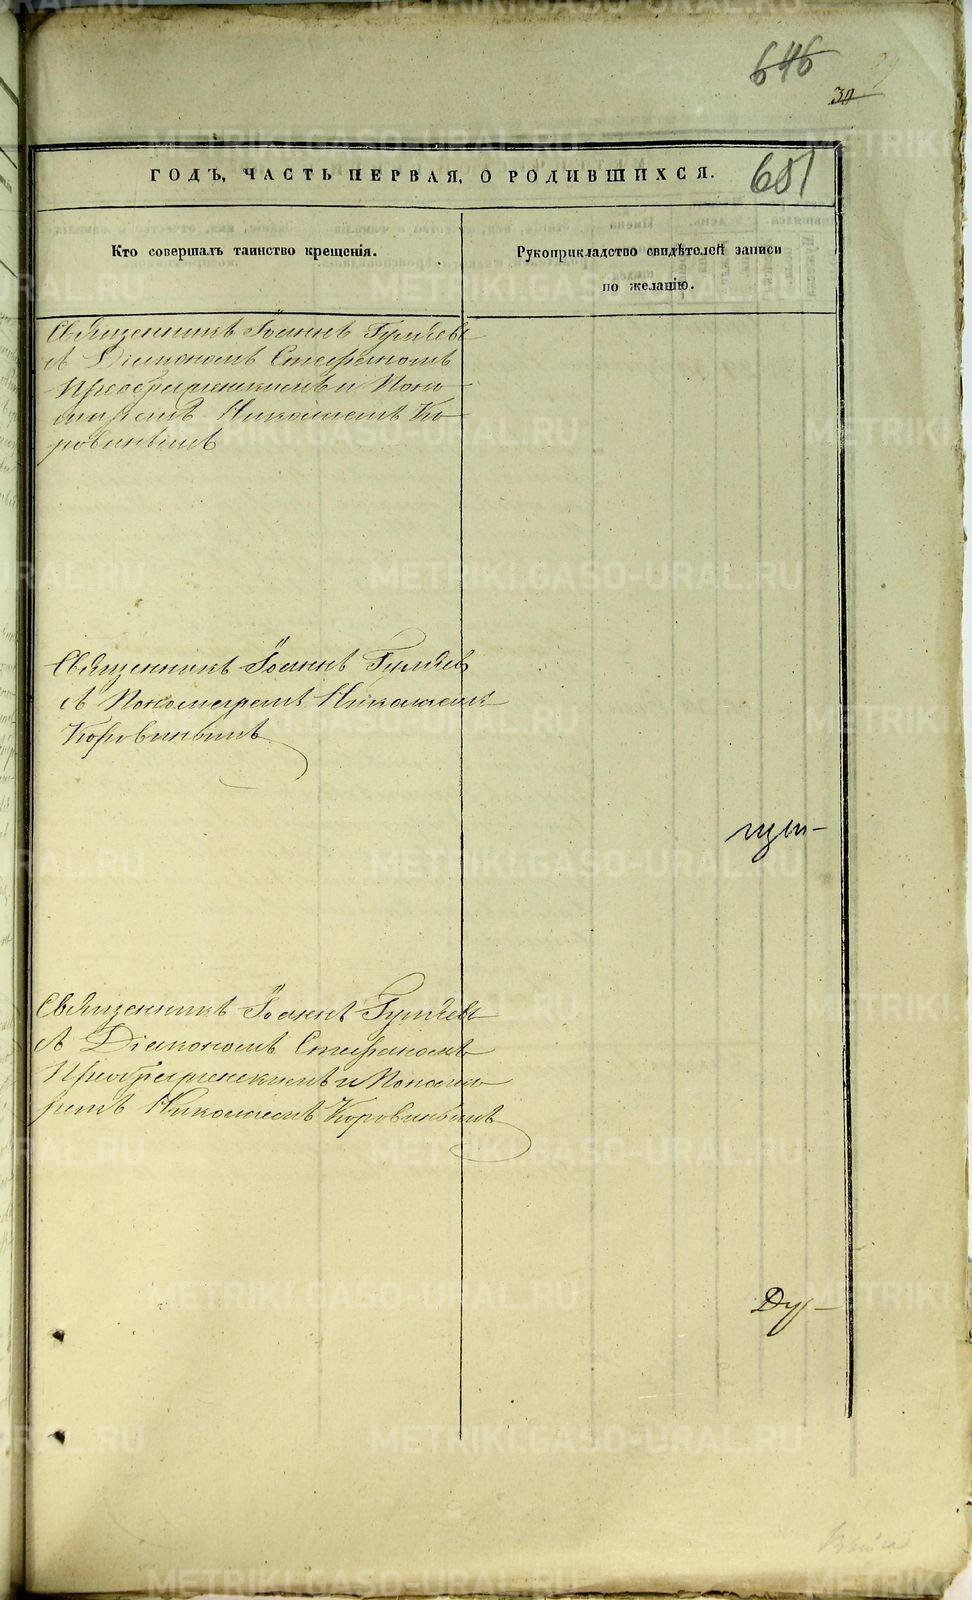 646
30
651
ГОДЪ, ЧАСТЬ ПЕРВАЯ, О РОДИВШИХСЯ.
Кто совершалъ таинство крещенія.
Рукоприкладство свидѣтелей записи
по желанію.
Священникъ Іоаннъ Гуляевъ
съ Діакономъ Стефаномъ
Преображенскимъ и Поно-
маремъ Николаемъ Ко-
ровинымъ
Священникъ Іоаннъ Гуляевъ
съ Пономаремъ Николаемъ
Коровинымъ
Священникъ Іоаннъ Гуляевъ
съ Діакономъ Стефаномъ
Преображенскимъ и Понома-
ремъ Николаемъ Коровинымъ
METRIKI.GASO-URAL.RU